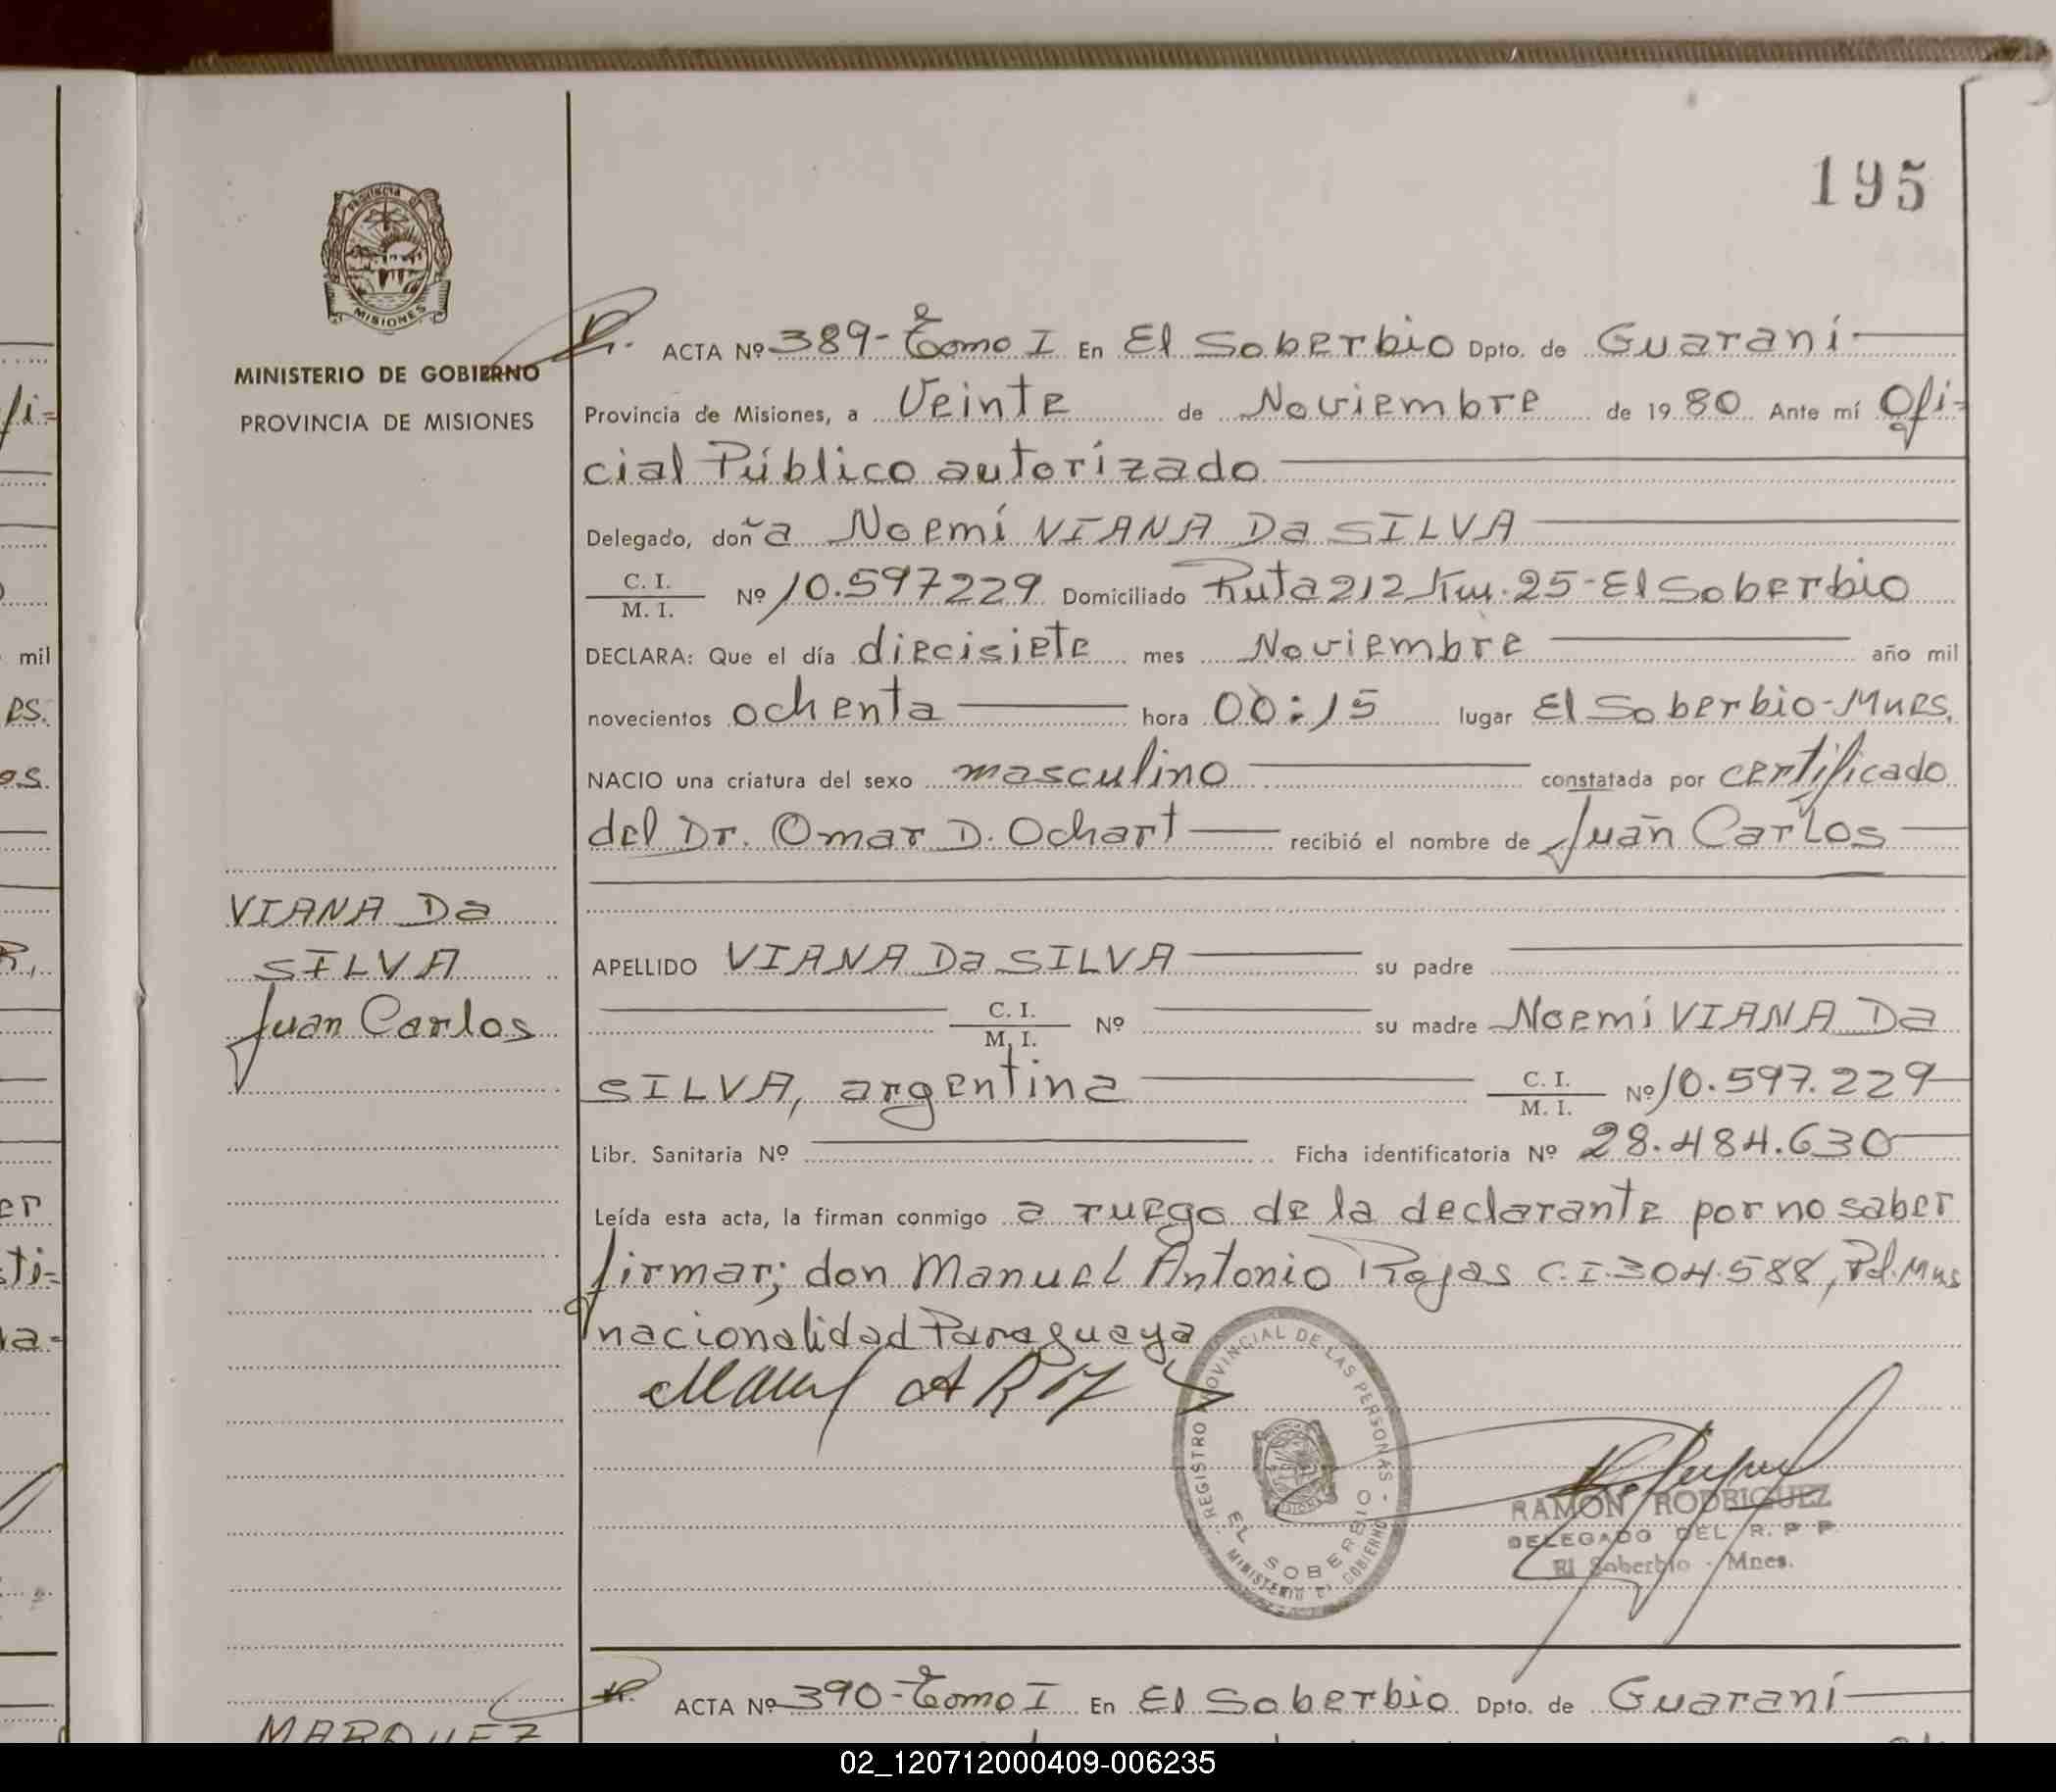 195
MINISTERIO DE GOBIERNO
PROVINCIA DE MISIONES
ACTA Nº 389-Tomo I En El Soberbio Dpto. de Guaraní
Provincia de Misiones, a Veinte de Noviembre de 1980 Ante mí Ofi-
cial Público autorizado
Delegado, doña Noemí VIANA Da SILVA
C. I.
M. I. Nº 10.597229 Domiciliado Ruta 212 Km. 25-El Soberbio
DECLARA: Que el día diecisiete mes Noviembre año mil
novecientos ochenta hora 00:15 lugar El Soberbio-Mnes.
NACIO una criatura del sexo masculino constatada por certificado
del Dr. Omar D. Ochart recibió el nombre de Juan Carlos
VIANA Da
SILVA
Juan Carlos
APELLIDO VIANA Da SILVA su padre
C. I.
M. I. Nº su madre Noemí VIANA Da
SILVA, argentina C. I.
M. I. Nº 10.597.229
Libr. Sanitaria Nº Ficha identificatoria Nº 28.484.630
Leída esta acta, la firman conmigo a ruego de la declarante por no saber
firmar; don Manuel Antonio Rojas C.I. 304.588, Pol. Mns
nacionalidad Paraguaya
REGISTRO PROVINCIAL DE LAS PERSONAS -
EL SOBERBIO
MINISTERIO DE GOBIERNO
RAMON RODRIGUEZ
DELEGADO DEL R. P P
El Soberbio - Mnes.
ACTA Nº 390-Tomo I En El Soberbio Dpto. de Guaraní
MARQUEZ
mil
02_120712000409-006235